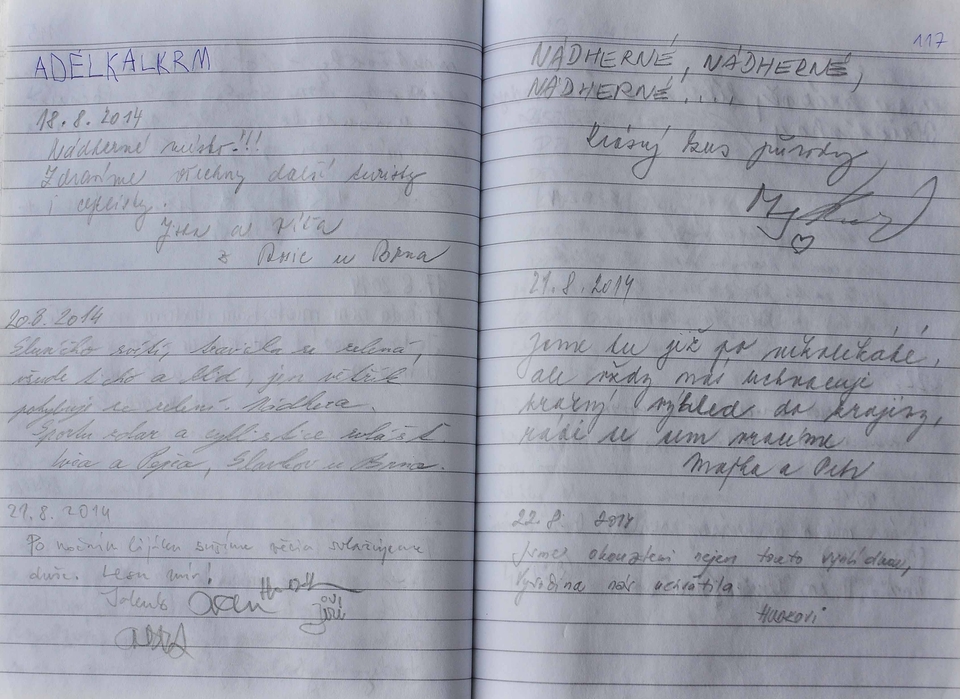 ADÉLKALKRM
18.8.2014
Nádherné místo!!!
Zdravíme všechny další turisty
i cyklisty.
Jirka a Víťa
z Rosic u Brna
20.8.2014
Sluníčko svítí, travička se zelená,
všude ticho a klid, jen větřík
pohybuje se zelení. Nádhera.
Sportu zdar a cyklistice zvlášť
a Pepča, Slavkov u Brna.
21.8.2014
Po nočním lijáku sušíme
duše. Lesu mír!
117
NÁDHERNÉ, NÁDHERNÉ,
NÁDHERNÉ....
Krásný kus přírody
21.8.2014
Jsme tu již po několikáté,
ale vždy nás uchvacuje
krásný výhled do krajiny,
rádi se sem vracíme
Majka a Petr
22.8. 2014
Jsme okouzleni nejen touto vyhlídkou,
Vysočina nás uchvátila.